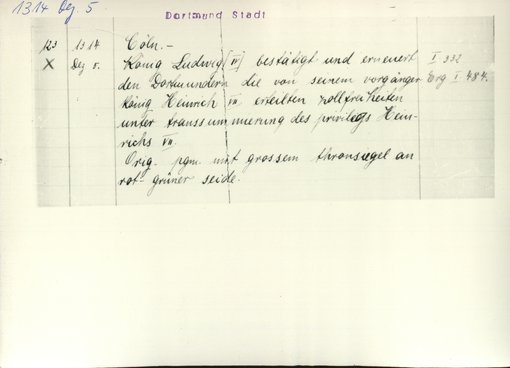 1314 Dez. 5
Dortmund Stadt
123 1314 Cöln. —
X Dez 5. König Ludwig [IV] bestätigt und erneuert I 332
den Dortmundern die von seinem vorgänger Erg I 484.
könig Heinrich VII erteilten zollfreiheiten
unter transsummierung des privilegs Hein-
richs VII.
Orig. pgm. mit grossem thronsiegel an
rot-grüner seide.